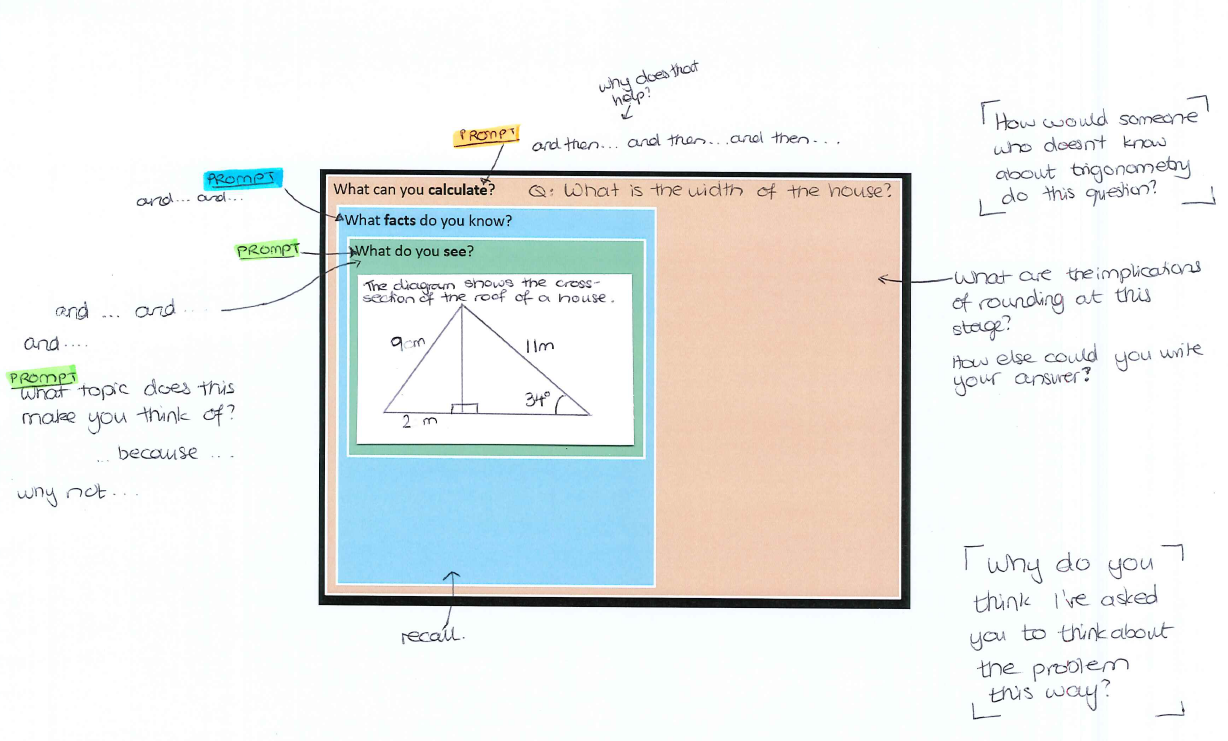 why does that
help?
PROMPT
and then... and then...and then...
What can you calculate?
Q: What is the width of the house?
PROMPT
and... and...
What facts do you know?
PROMPT
What do you see?
The diagram shows the cross-
section of the roof of a house.
9cm
11m
34°
2 m
and ... and ....
and....
PROMPT
What topic does this
make you think of?
... because ...
why not...
recall.
How would someone
who doesn't know
about trigonometry
do this question?
What are the implications
of rounding at this
stage?
How else could you write
your answer?
Why do you
think I've asked
you to think about
the problem
this way?